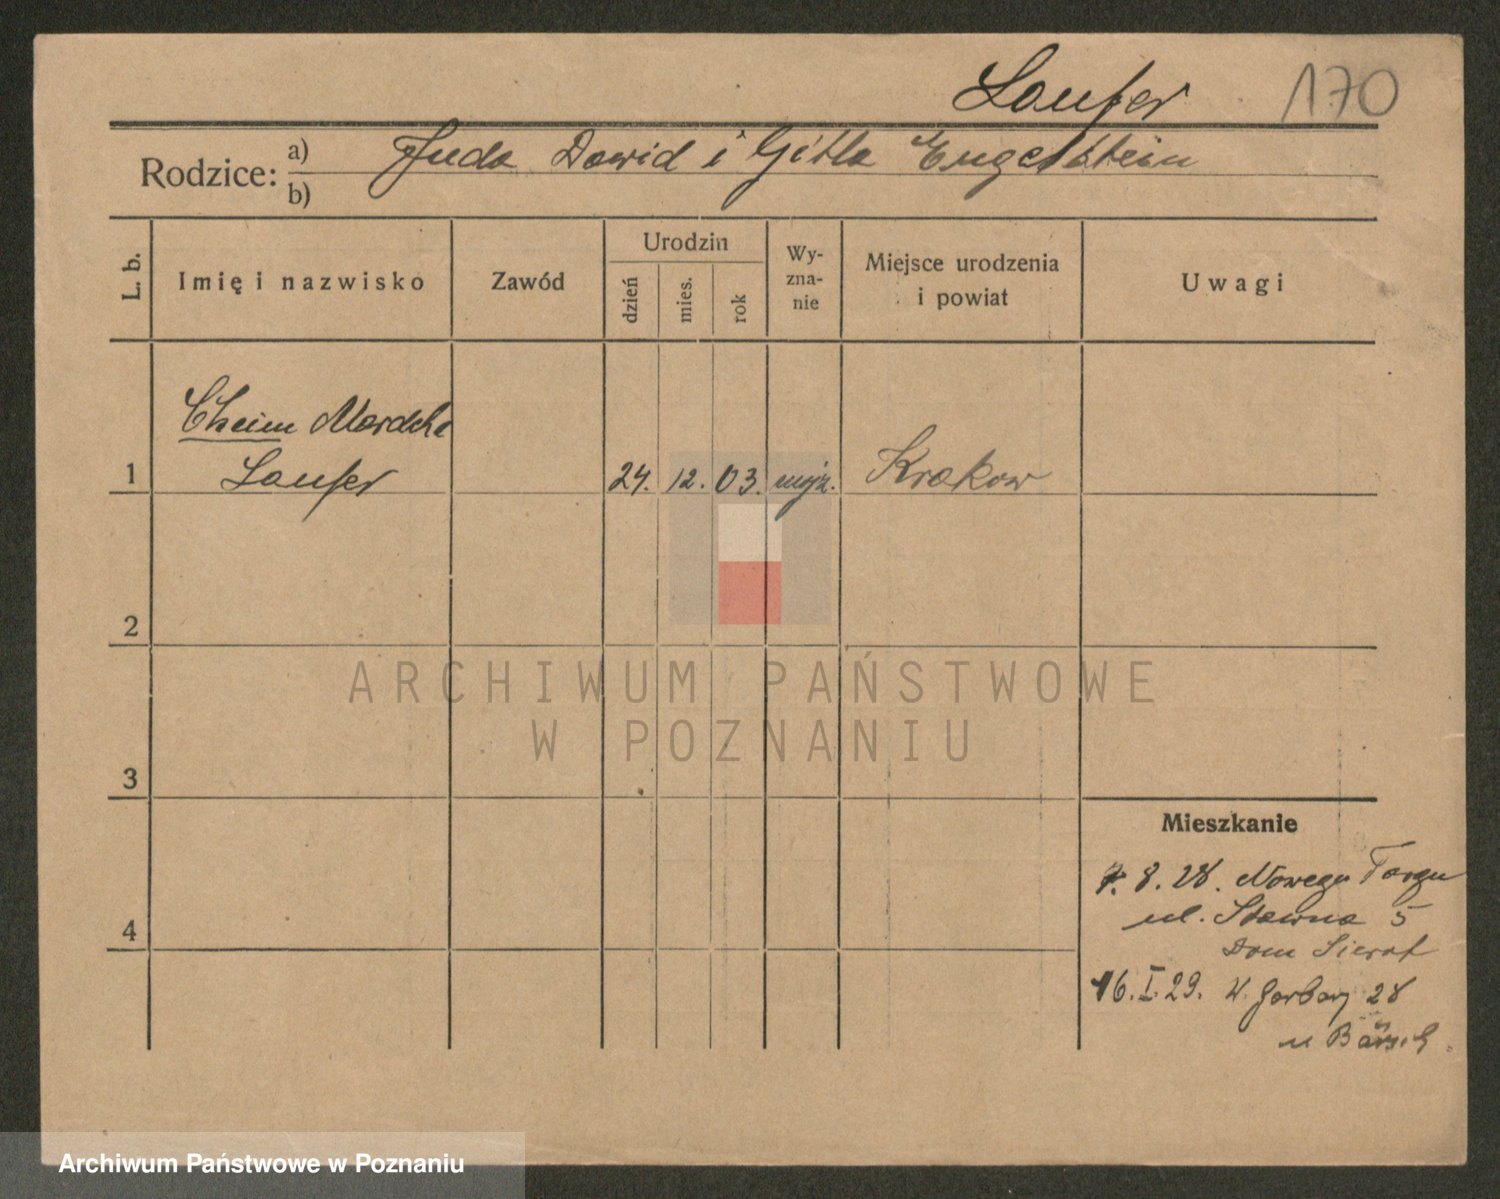 Laufer 170
Rodzice: a) Juda Dawid i Gitla Engelstein
b)
L. b. Imię i nazwisko Zawód Urodzin dzień mies. rok Wy-zna-nie Miejsce urodzenia i powiat Uwagi
Chaim Mordche
1 Laufer 24. 12. 03. mojż. Krakow
2
ARCHIWUM PAŃSTWOWE
W POZNANIU
3
Mieszkanie
7. 8. 28. Nowego Targu
4 ul. Stawna 5
Dom Sierot
16. I. 29. W. Garbary 28
u
Archiwum Państwowe w Poznaniu